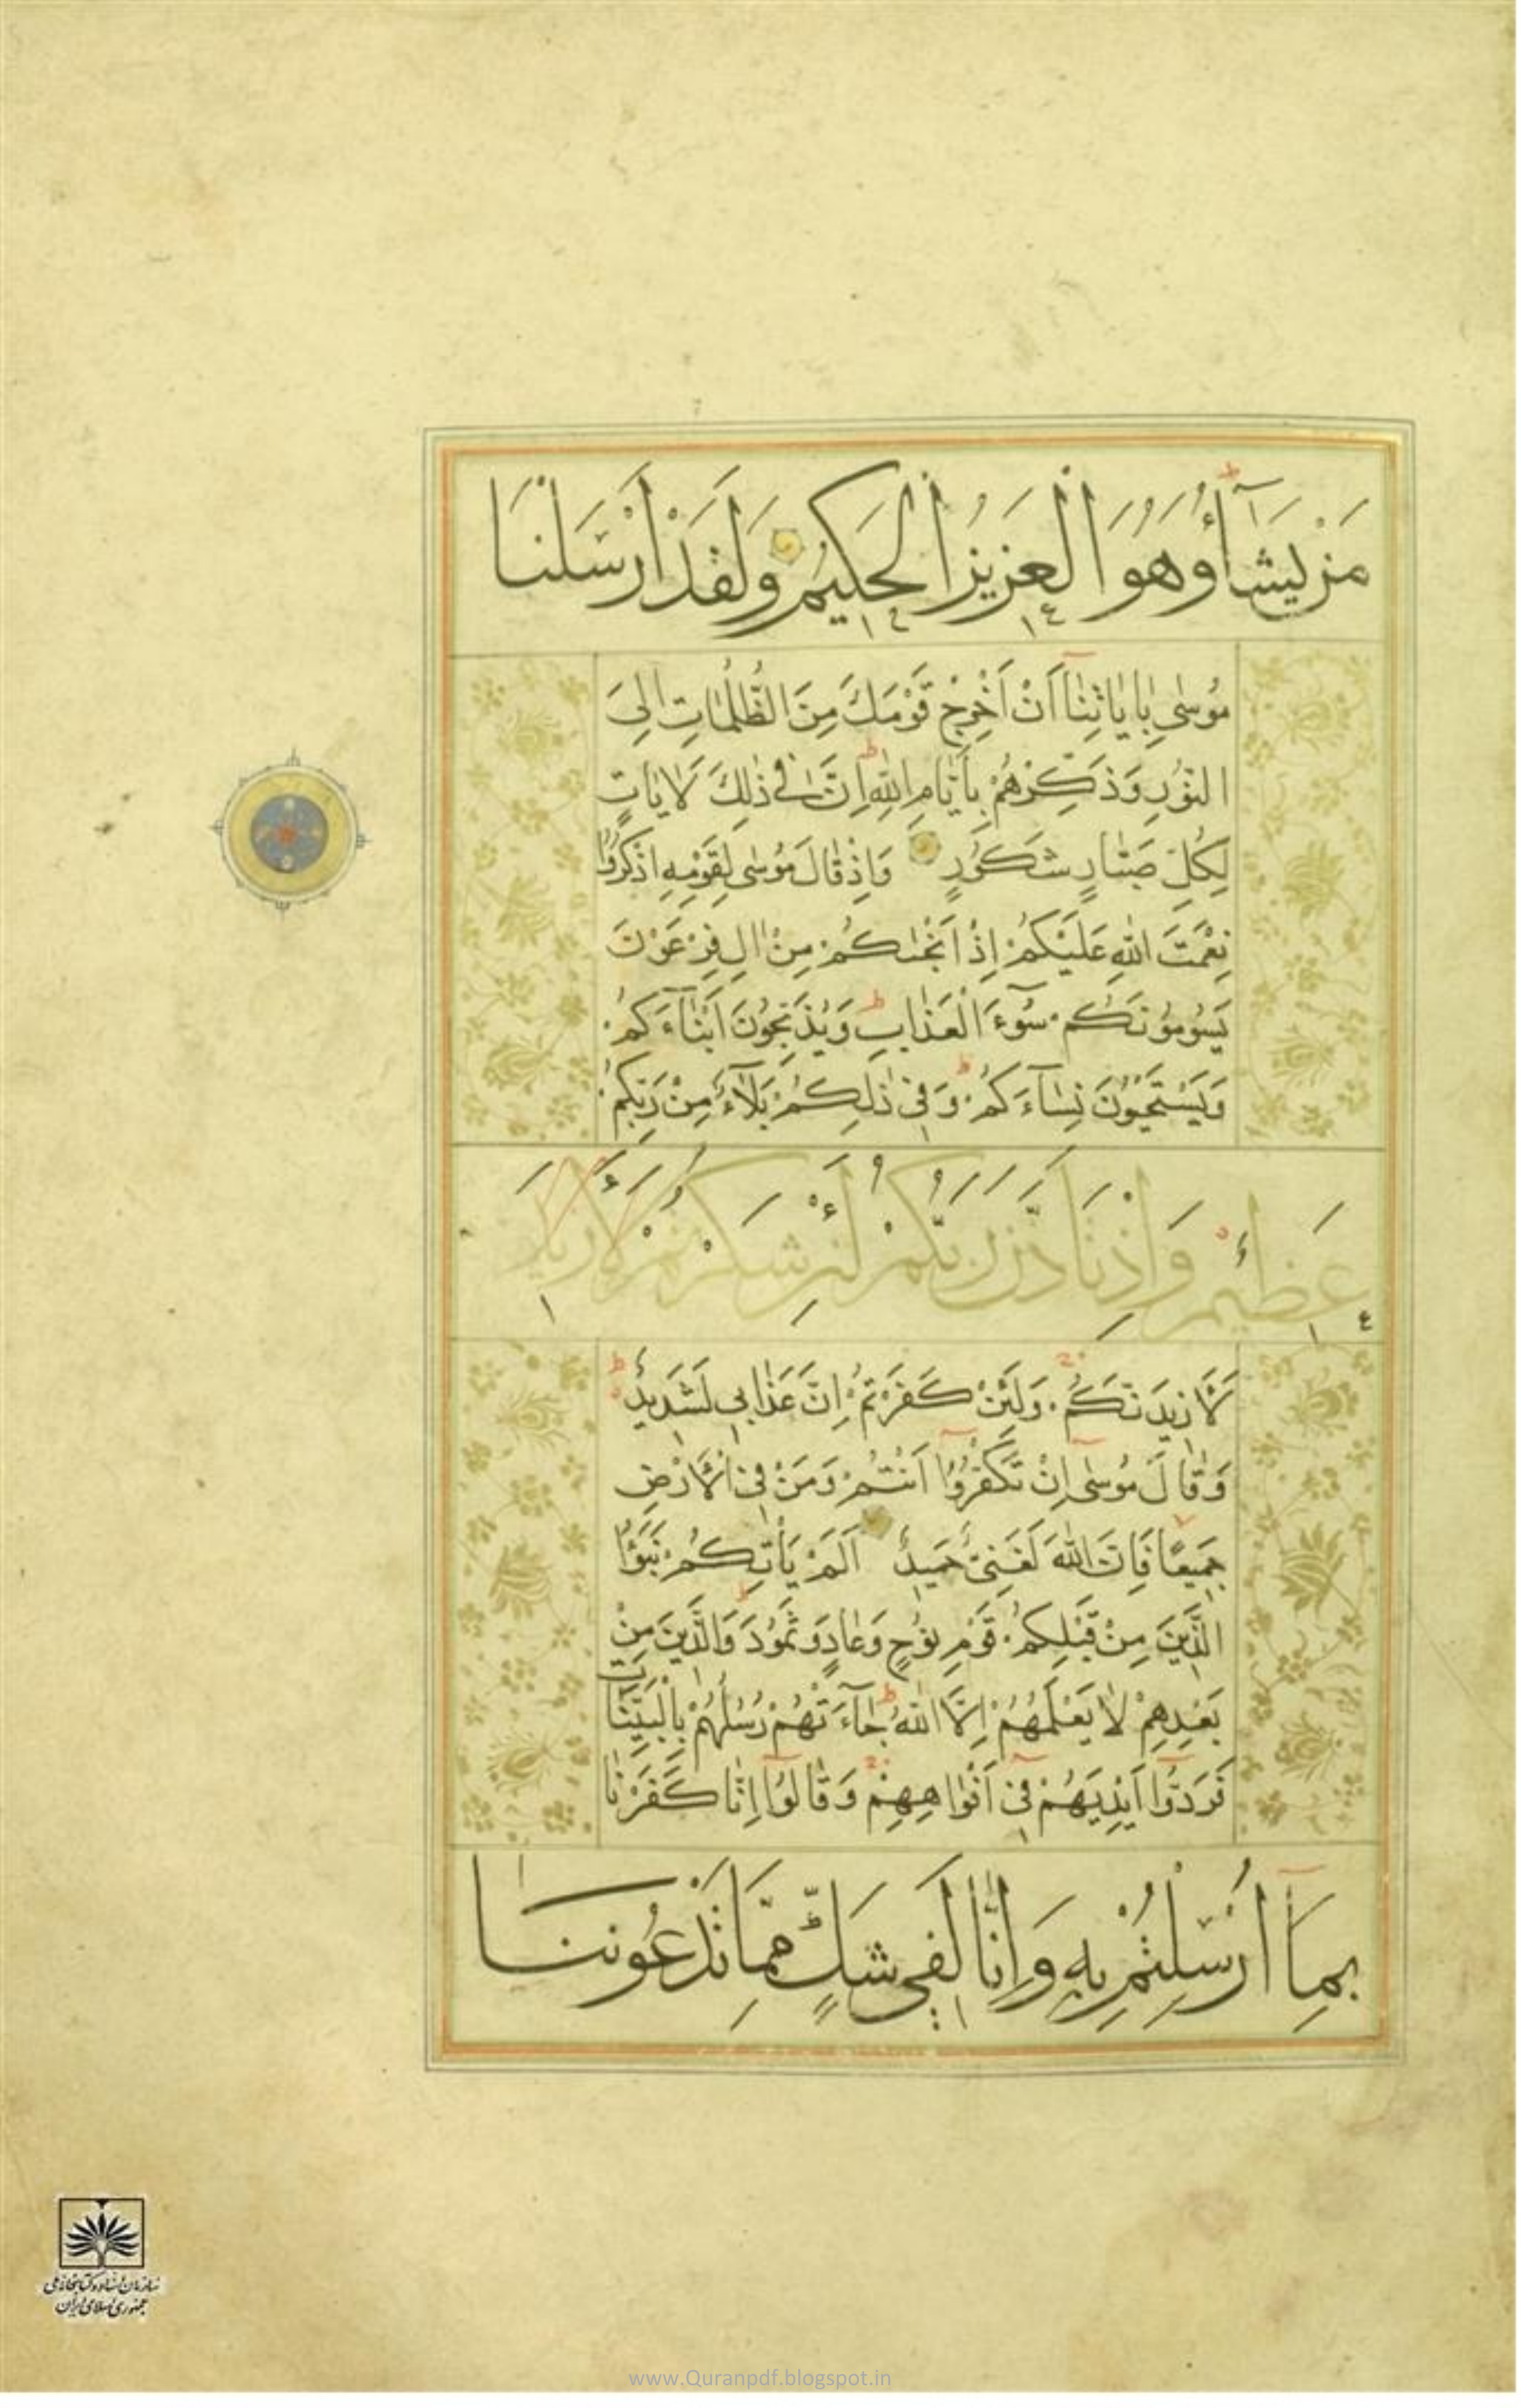 مَنْ يَشَآءُ وَهُوَ الْعَزِيزُ الْحَكِيمُ وَلَقَدْ اَرْسَلْنَا
مُوسٰى بِاٰيٰاتِنٰآ اَنْ اَخْرِجْ قَوْمَكَ مِنَ الظُّلُمٰاتِ اِلَى
النُّورِ وَذَكِّرْهُمْ بِاَيّٰامِ اللّٰهِ اِنَّ فِي ذٰلِكَ لَاٰيٰاتٍ
لِكُلِّ صَبّٰارٍ شَكُورٍ وَاِذْ قٰالَ مُوسٰى لِقَوْمِهِ اذْكُرُوا
نِعْمَتَ اللّٰهِ عَلَيْكُمْ اِذْ اَنْجٰىكُمْ مِنْ اٰلِ فِرْعَوْنَ
يَسُومُونَكُمْ سُوٓءَ الْعَذٰابِ وَيُذَبِّحُونَ اَبْنٰآءَكُمْ
وَيَسْتَحْيُونَ نِسٰآءَكُمْ وَفِي ذٰلِكُمْ بَلَآءٌ مِنْ رَبِّكُمْ
عَظِيمٌ وَاِذْ تَاَذَّنَ رَبُّكُمْ لَئِنْ شَكَرْتُمْ لَاَزِيدَ
لَاَزِيدَنَّكُمْ وَلَئِنْ كَفَرْتُمْ اِنَّ عَذٰابِي لَشَدِيدٌ
وَقٰالَ مُوسٰٓى اِنْ تَكْفُرُوٓا اَنْتُمْ وَمَنْ فِي الْاَرْضِ
جَمِيعًا فَاِنَّ اللّٰهَ لَغَنِيٌّ حَمِيدٌ اَلَمْ يَأْتِكُمْ نَبَؤُا
الَّذِينَ مِنْ قَبْلِكُمْ قَوْمِ نُوحٍ وَعٰادٍ وَثَمُودَ وَالَّذِينَ مِنْ
بَعْدِهِمْ لٰا يَعْلَمُهُمْ اِلَّا اللّٰهُ جٰآءَتْهُمْ رُسُلُهُمْ بِالْبَيِّنٰاتِ
فَرَدُّوٓا اَيْدِيَهُمْ فِيٓ اَفْوٰاهِهِمْ وَقٰالُوٓا اِنّٰا كَفَرْنٰا
بِمَآ اُرْسِلْتُمْ بِهِ وَاِنّٰا لَفِي شَكٍّ مِمَّا تَدْعُونَنَا
سازمان اسناد و کتابخانه ملی
جمهوری اسلامی ایران
www.Quranpdf.blogspot.in